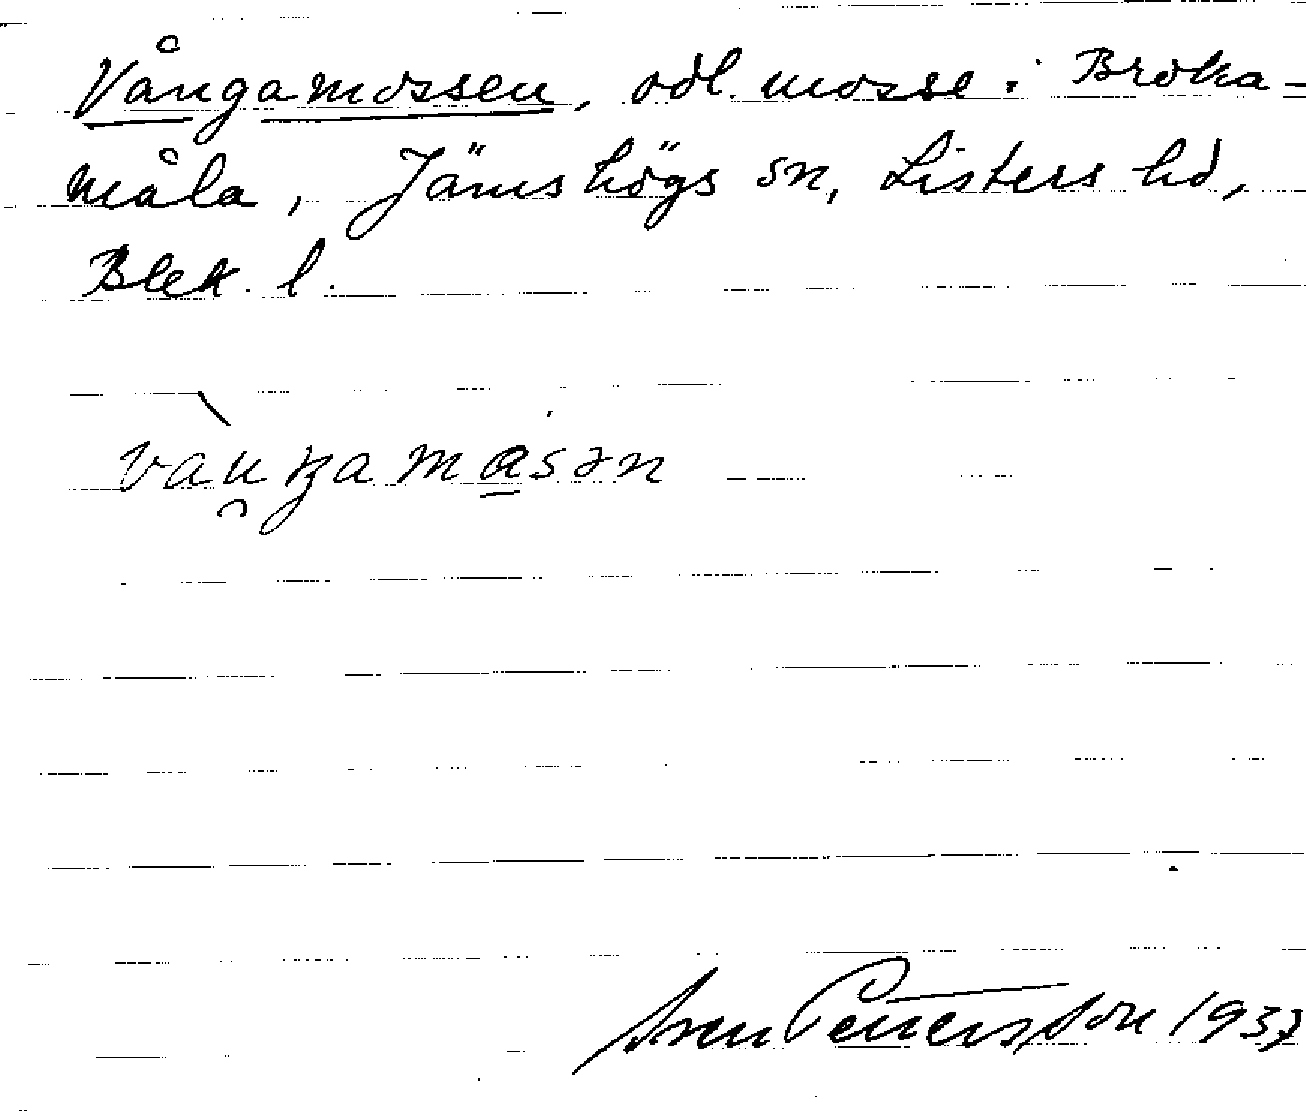 Vångamossen, odl. mosse i Broka-
måla, Jämshögs sn, Listers hd,
Blek. l.
Sven Pettersson 1937